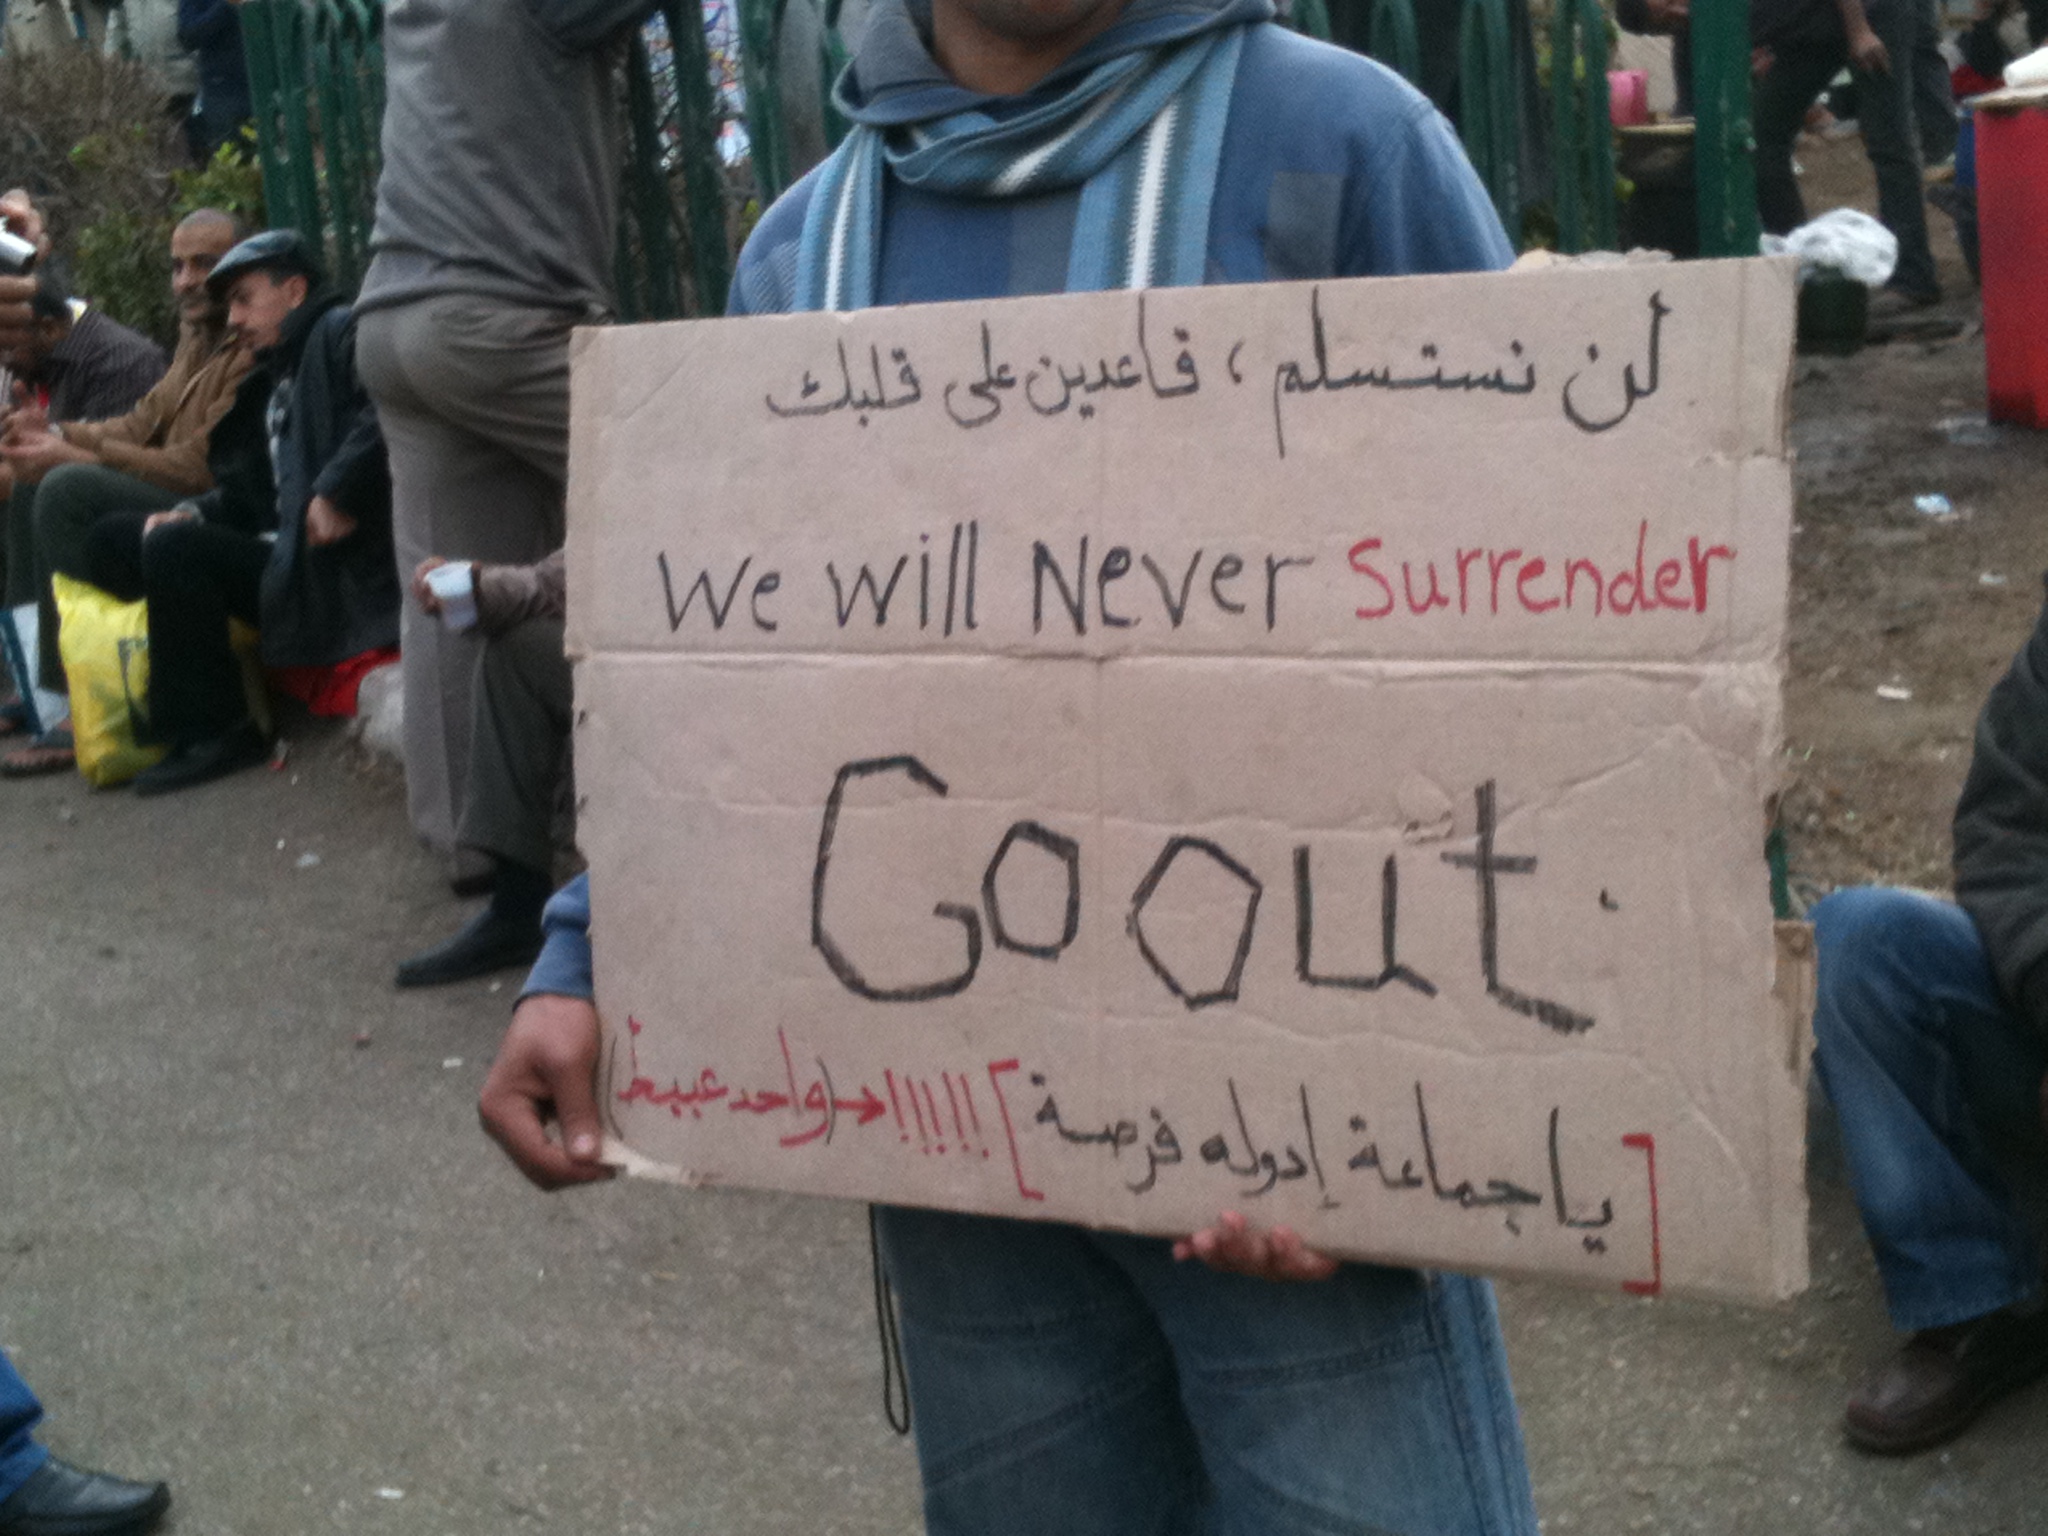 لن نستسلم ، قاعدين على قلبك
We will Never Surrender
Go out .
[ياجماعة إدوله فرصة] !!!!!! ← (واحد عبيط)